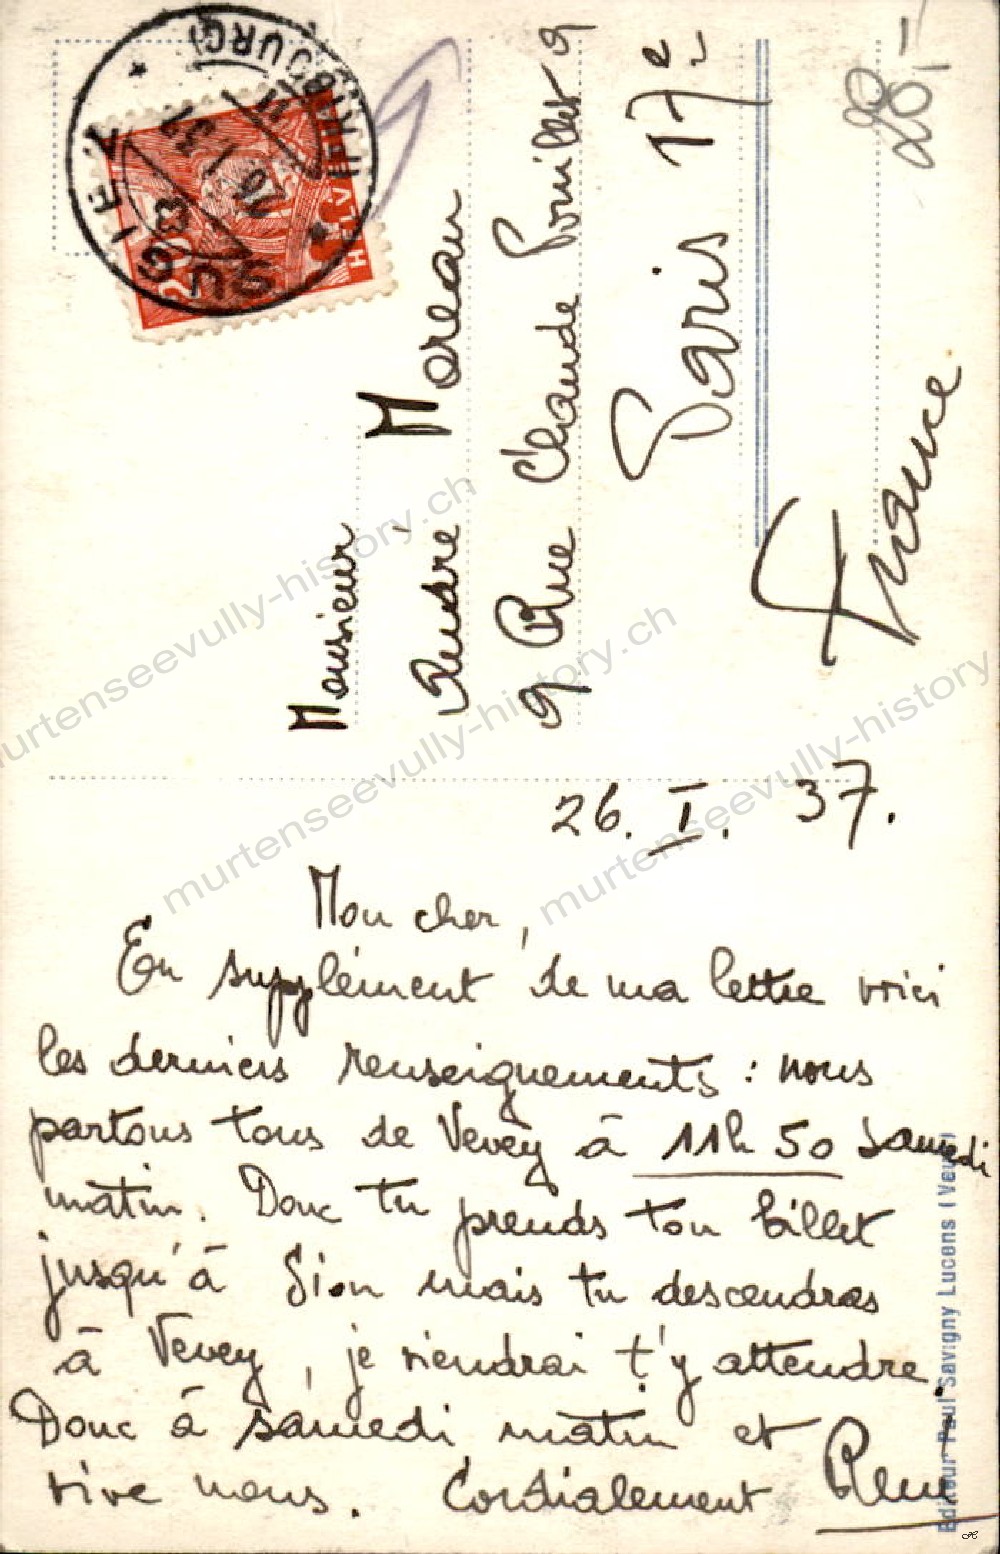 SUGIEZ
(FRIBOURG)
26 I 37
HELVETIA
20
28,-
Monsieur
André Moreau
9 Rue Claude Pouillet 9
Paris 17e
France
26. I. 37.
Mon cher,
En supplément de ma lettre voici
les derniers renseignements : nous
partons tous de Vevey à 11h 50 samedi
matin. Donc tu prends ton billet
jusqu'à Sion mais tu descendras
à Vevey, je viendrai t'y attendre.
Donc à samedi matin et
vive nous. Cordialement René
Editeur Paul Savigny Lucens (Veveyse)
murtenseevully-history.ch
murtenseevully-history.ch
murtenseevully-history